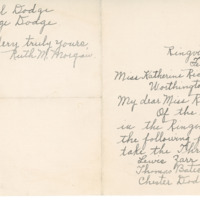 l Dodge
ge Dodge
ery truly yours,
Ruth M. Morgan
Ringvo
Miss Katherine Ri
Worthingto
My dear Miss R
Of the
is the Ringv
the following
take the
Lewis Zarr
Thomas Bates
Chester Dod